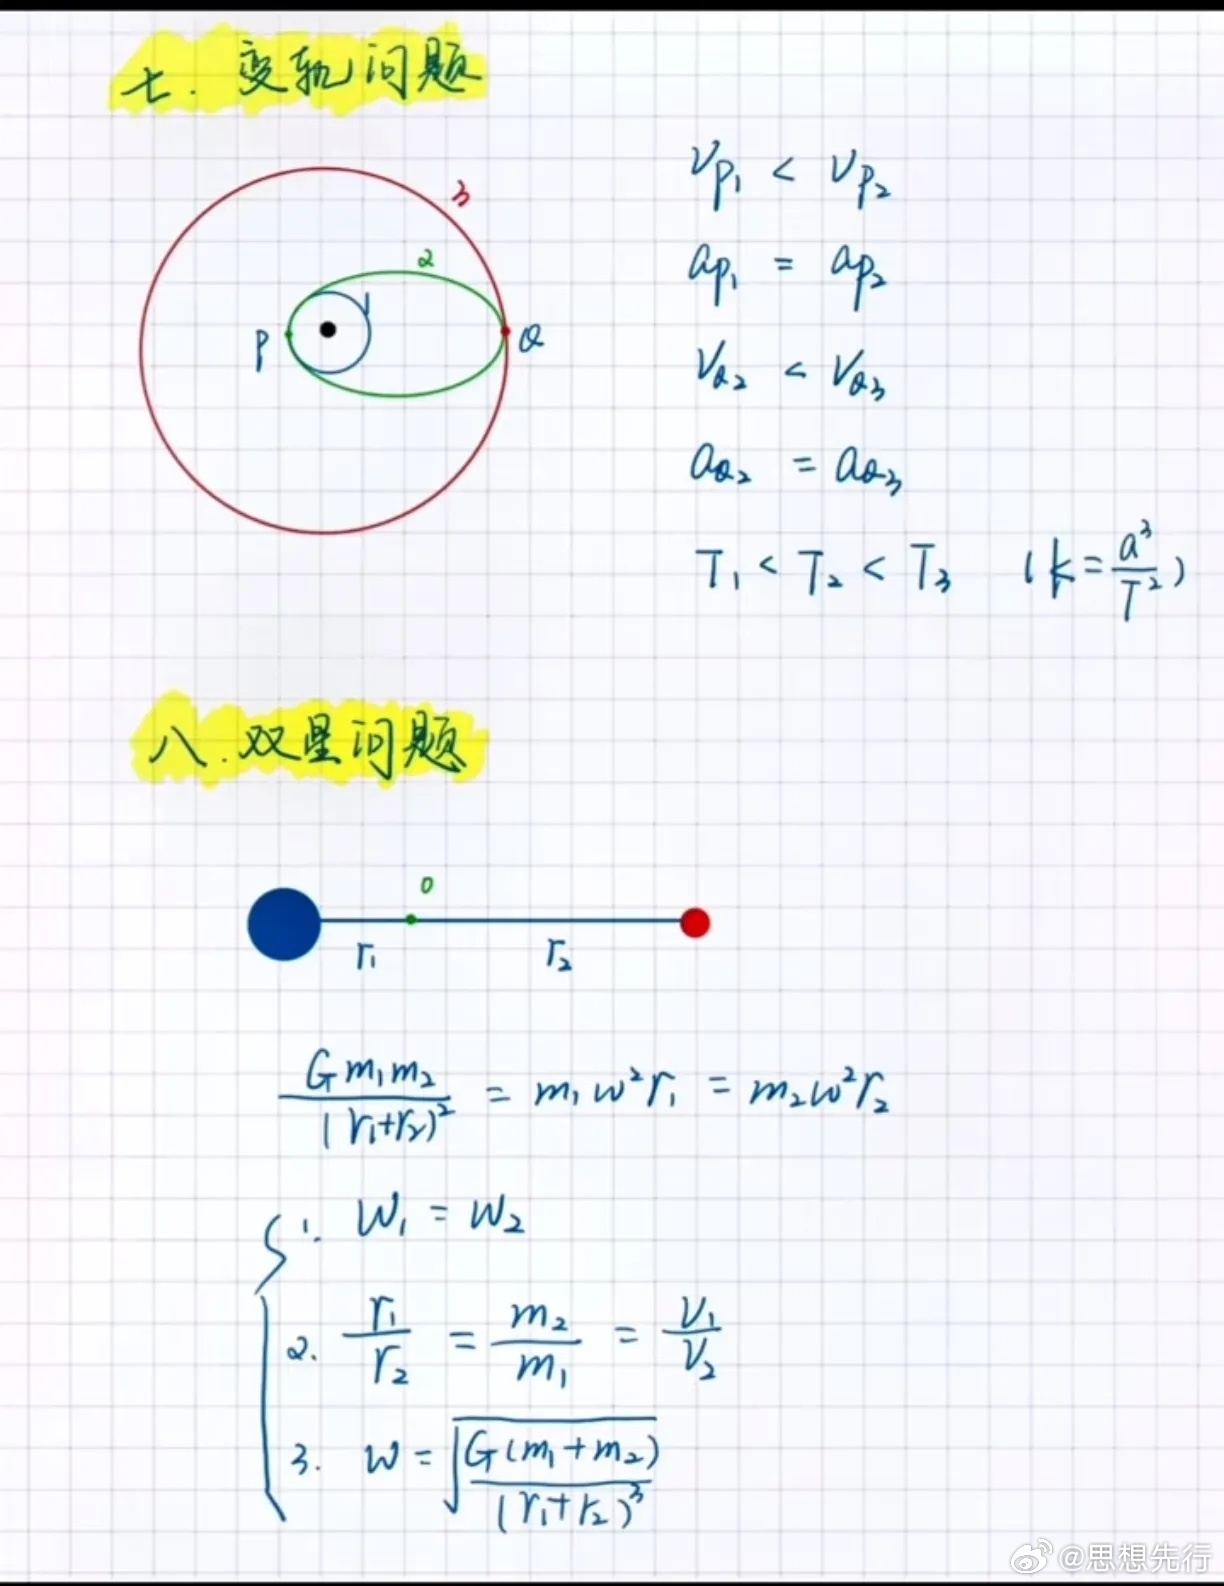 七. 变轨问题
3
2
1
P
Q
Vp₁ < Vp₂
ap₁ = ap₂
VQ₂ < VQ₃
aQ₂ = aQ₃
T₁ < T₂ < T₃ (k = a³/T²)
八. 双星问题
O
r₁ r₂
Gm₁m₂/(r₁+r₂)² = m₁w²r₁ = m₂w²r₂
1. w₁ = w₂
2. r₁/r₂ = m₂/m₁ = V₁/V₂
3. w = √(G(m₁+m₂)/(r₁+r₂)³)
@思想先行